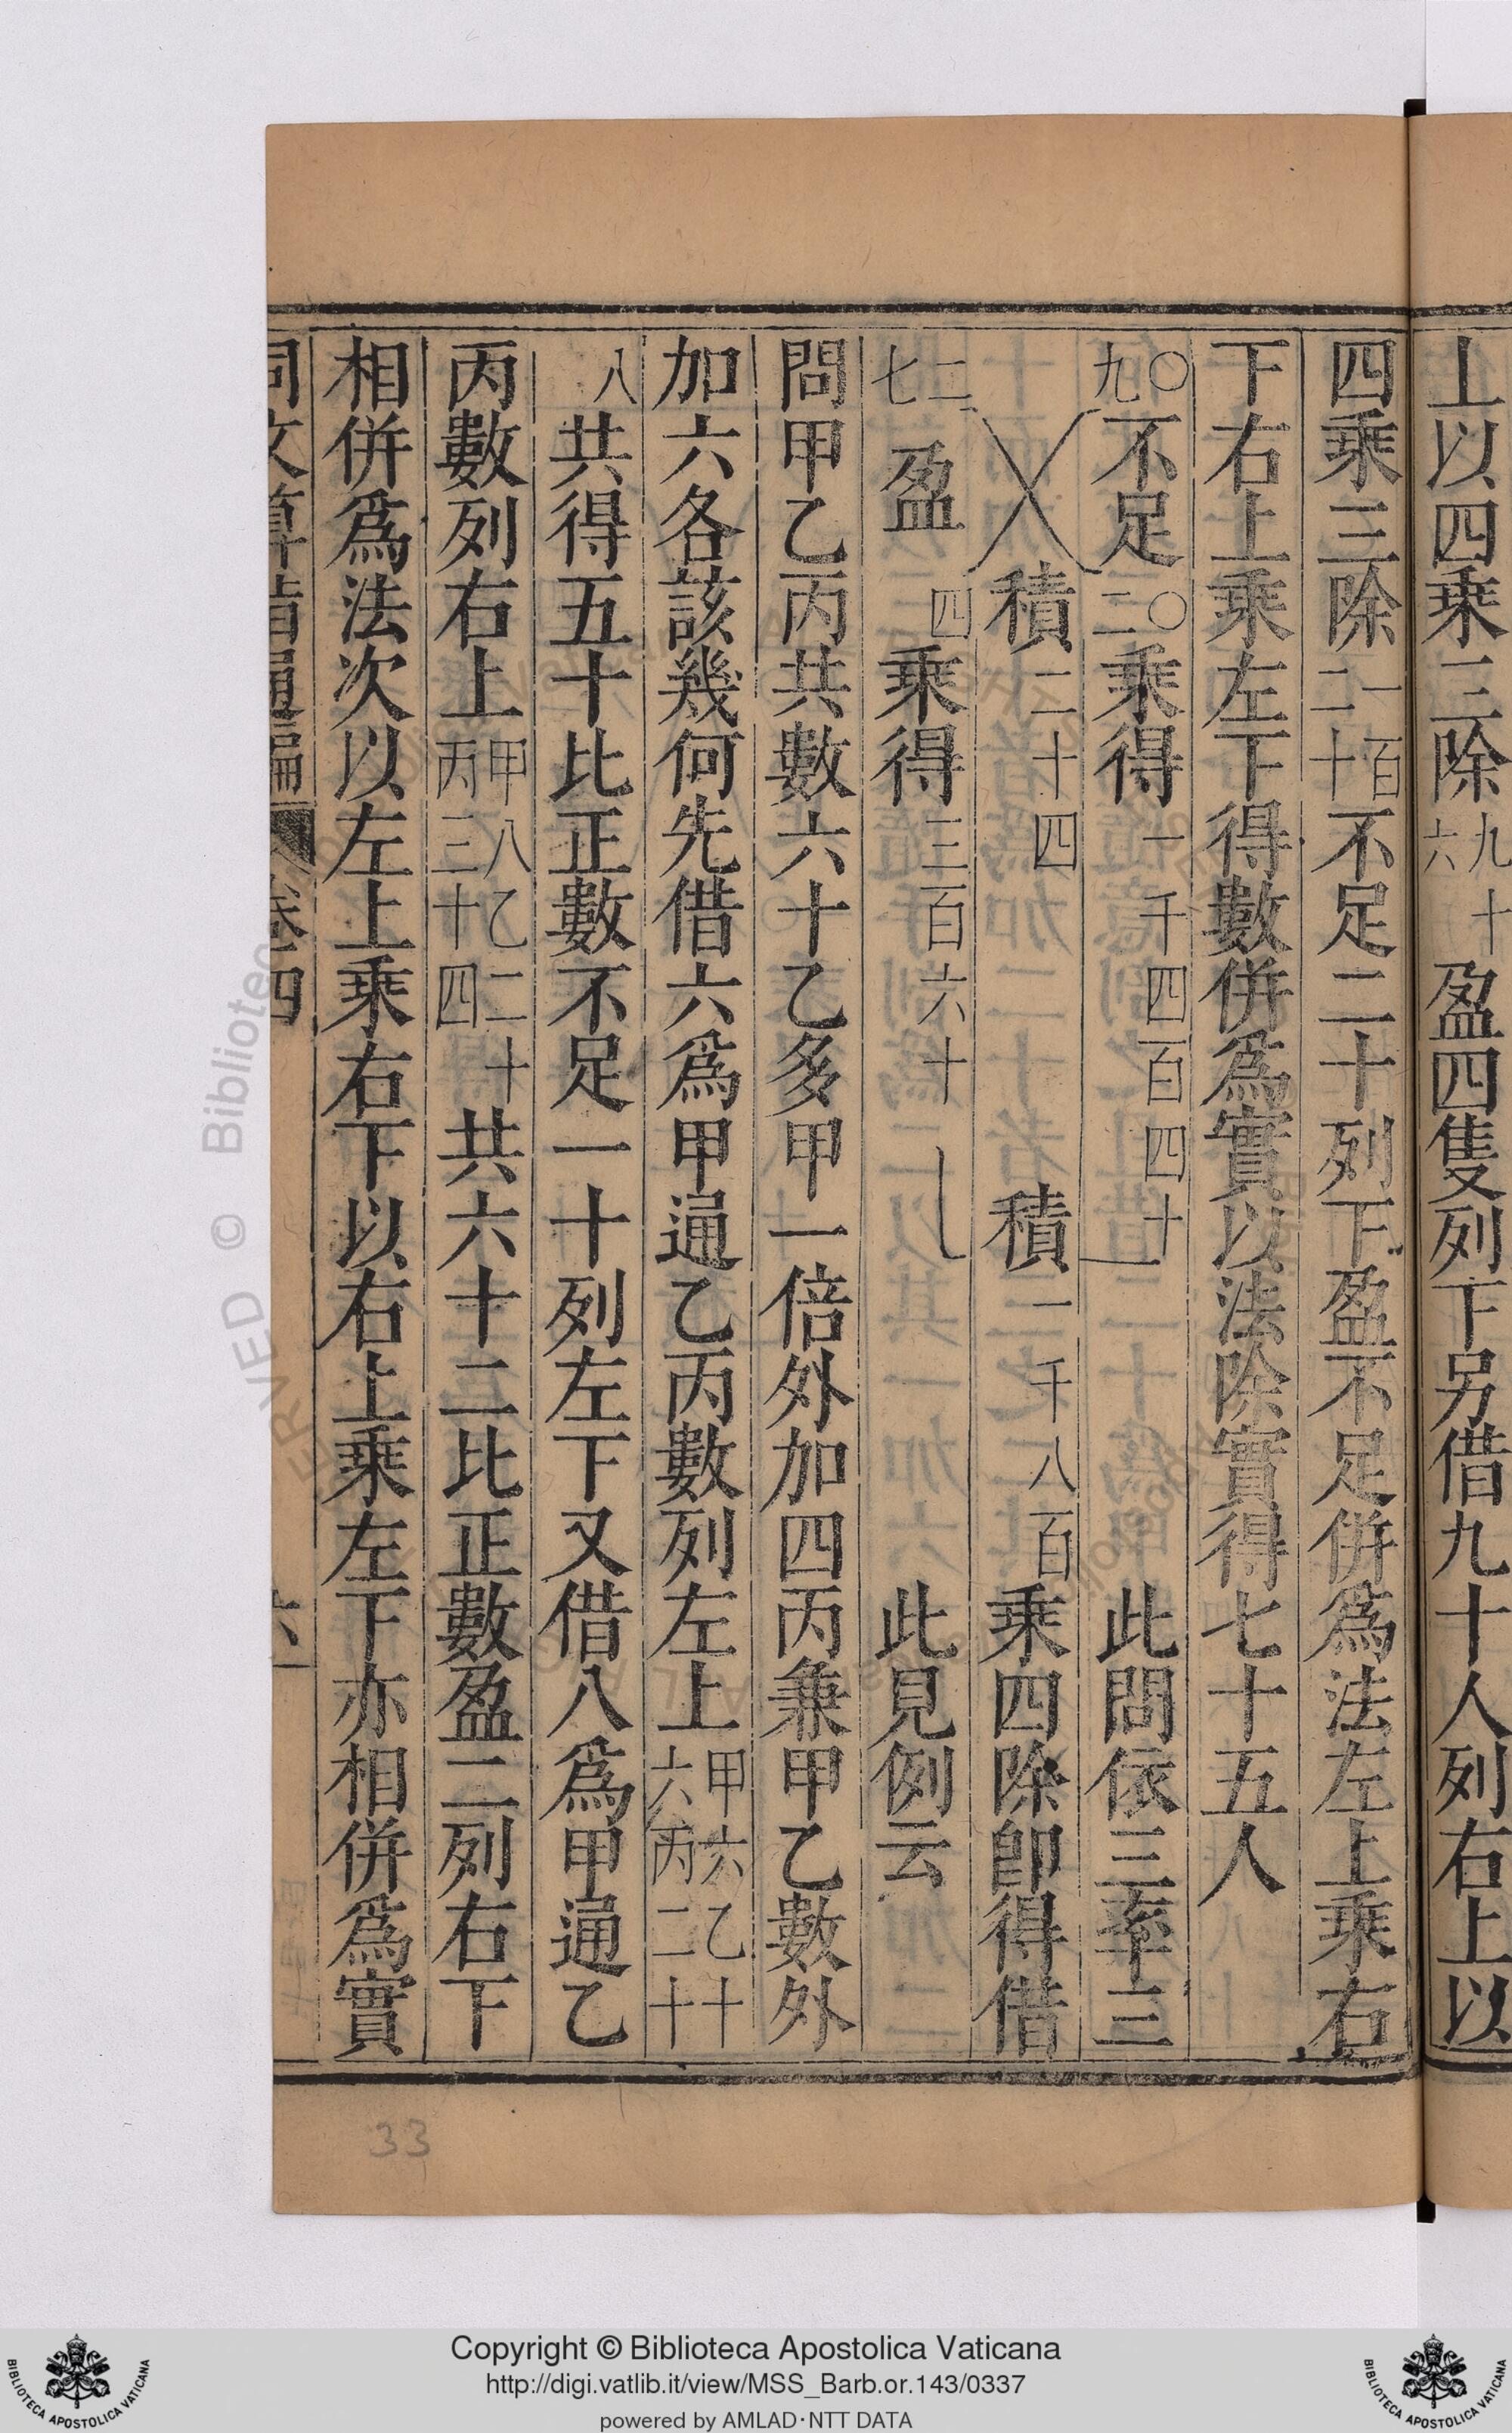 上以四乘三除九十六盈四隻列下另借九十人列右上以
四乘三除一百二十不足二十列下盈不足併爲法左上乘右
下右上乘左下得數併爲實以法除實得七十五人
〇九不足〇二乘得一千四百四十 此問依三率三
積二十四 積一千八百 乘四除卽得借
二七盈四乘得三百六十 此見例云
問甲乙丙共數六十乙多甲一倍外加四丙兼甲乙數外
加六各該幾何先借六爲甲通乙丙數列左上甲六乙十六丙二十
八共得五十比正數不足一十列左下又借八爲甲通乙
丙數列右上甲八乙二十丙三十四共六十二比正數盈二列右下
相併爲法次以左上乘右下以右上乘左下亦相併爲實
同文算指通編 卷四 六
33
Copyright © Biblioteca Apostolica Vaticana
http://digi.vatlib.it/view/MSS_Barb.or.143/0337
powered by AMLAD·NTT DATA
BIBLIOTECA APOSTOLICA VATICANA
BIBLIOTECA APOSTOLICA VATICANA